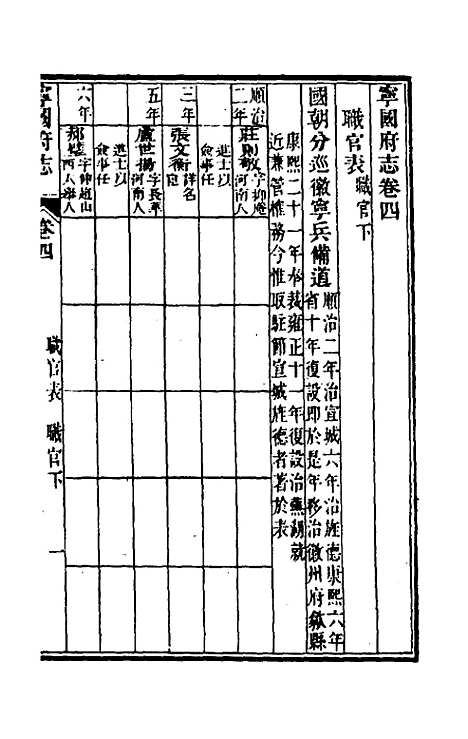 寧國府志卷四
職官表職官下
國朝分巡徽寧兵備道順治二年治宣城六年治旌德康熙六年
省十年復設即於是年移治徽州府歙縣
康熙二十一年奉裁雍正十一年復設治蕪湖就
近兼管榷務今惟取駐節宣城旌德者著於表
順治
二年
莊則敬字抑菴
河南人
進士以
僉事任
三年
張文衡詳名
臣
五年
盧世揚字長華
河南人
進士以
僉事任
六年
字仲超山
西人舉人
寧國府志
卷四
職官表 職官下
一